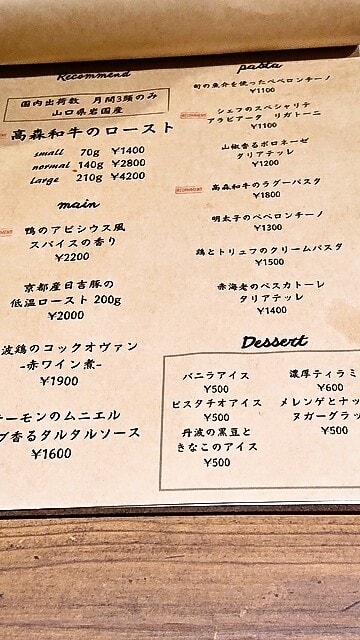 Recommend
国内出荷数 月間3頭のみ
山口県岩国産
高森和牛のロースト
small 70g ¥1400
normal 140g ¥2800
Large 210g ¥4200
main
鴨のアピシウス風
スパイスの香り
¥2200
京都産日吉豚の
低温ロースト 200g
¥2000
波鶏のコックオヴァン
-赤ワイン煮-
¥1900
ーモンのムニエル
ブ香るタルタルソース
¥1600
pasta
旬の魚介を使ったペペロンチーノ
¥1100
シェフのスペシャリテ
アラビアータ リガトーニ
¥1100
山椒香るボロネーゼ
タリアテッレ
¥1200
高森和牛のラグーパスタ
¥1800
明太子のペペロンチーノ
¥1300
鶏とトリュフのクリームパスタ
¥1500
赤海老のペスカトーレ
タリアテッレ
¥1400
Dessert
バニラアイス
¥500
ピスタチオアイス
¥500
丹波の黒豆と
きなこのアイス
¥500
濃厚ティラミ
¥600
メレンゲとナッ
ヌガーグラッ
¥500